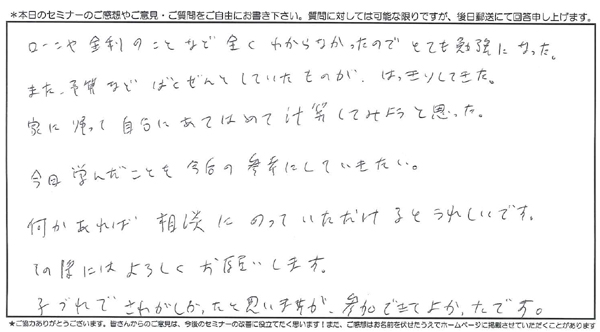 ＊本日のセミナーのご感想やご意見・ご質問をご自由にお書き下さい。質問に対しては可能な限りですが、後日郵送にて回答申し上げます。
ローンや金利のことなど全くわからなかったのでとても勉強になった。
また、予算などばくぜんとしていたものが、はっきりしてきた。
家に帰って自分にあてはめて計算してみようと思った。
今日学んだことを今后の参考にしていきたい。
何かあれば相談にのっていただけるとうれしいです。
その際にはよろしくお願いします。
子づれでさわがしかったと思いますが、参加できてよかったです。
＊ご協力ありがとうございます。皆さんからのご意見は、今後のセミナーの改善に役立てたく思います！また、ご感想はお名前を伏せたうえでホームページに掲載させていただくことがあります